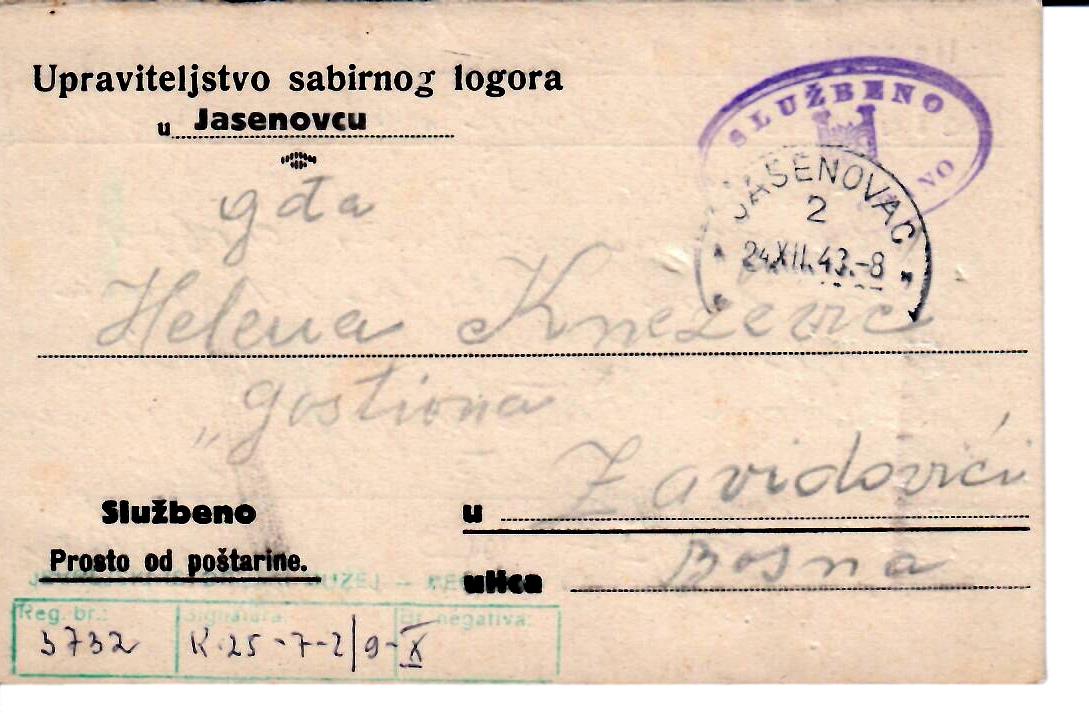 Upraviteljstvo sabirnog logora
u Jasenovcu
SLUŽBENO
NO
JASENOVAC
2
24.XII.43.-8
gđa
Helena Knežević
„gostiona
Zavidovići
Službeno
u
Prosto od poštarine.
Bosna
ulica
MUZEJ –
Reg. br.: Signatura: Br. negativa:
3732 K.25-7-2/9-X